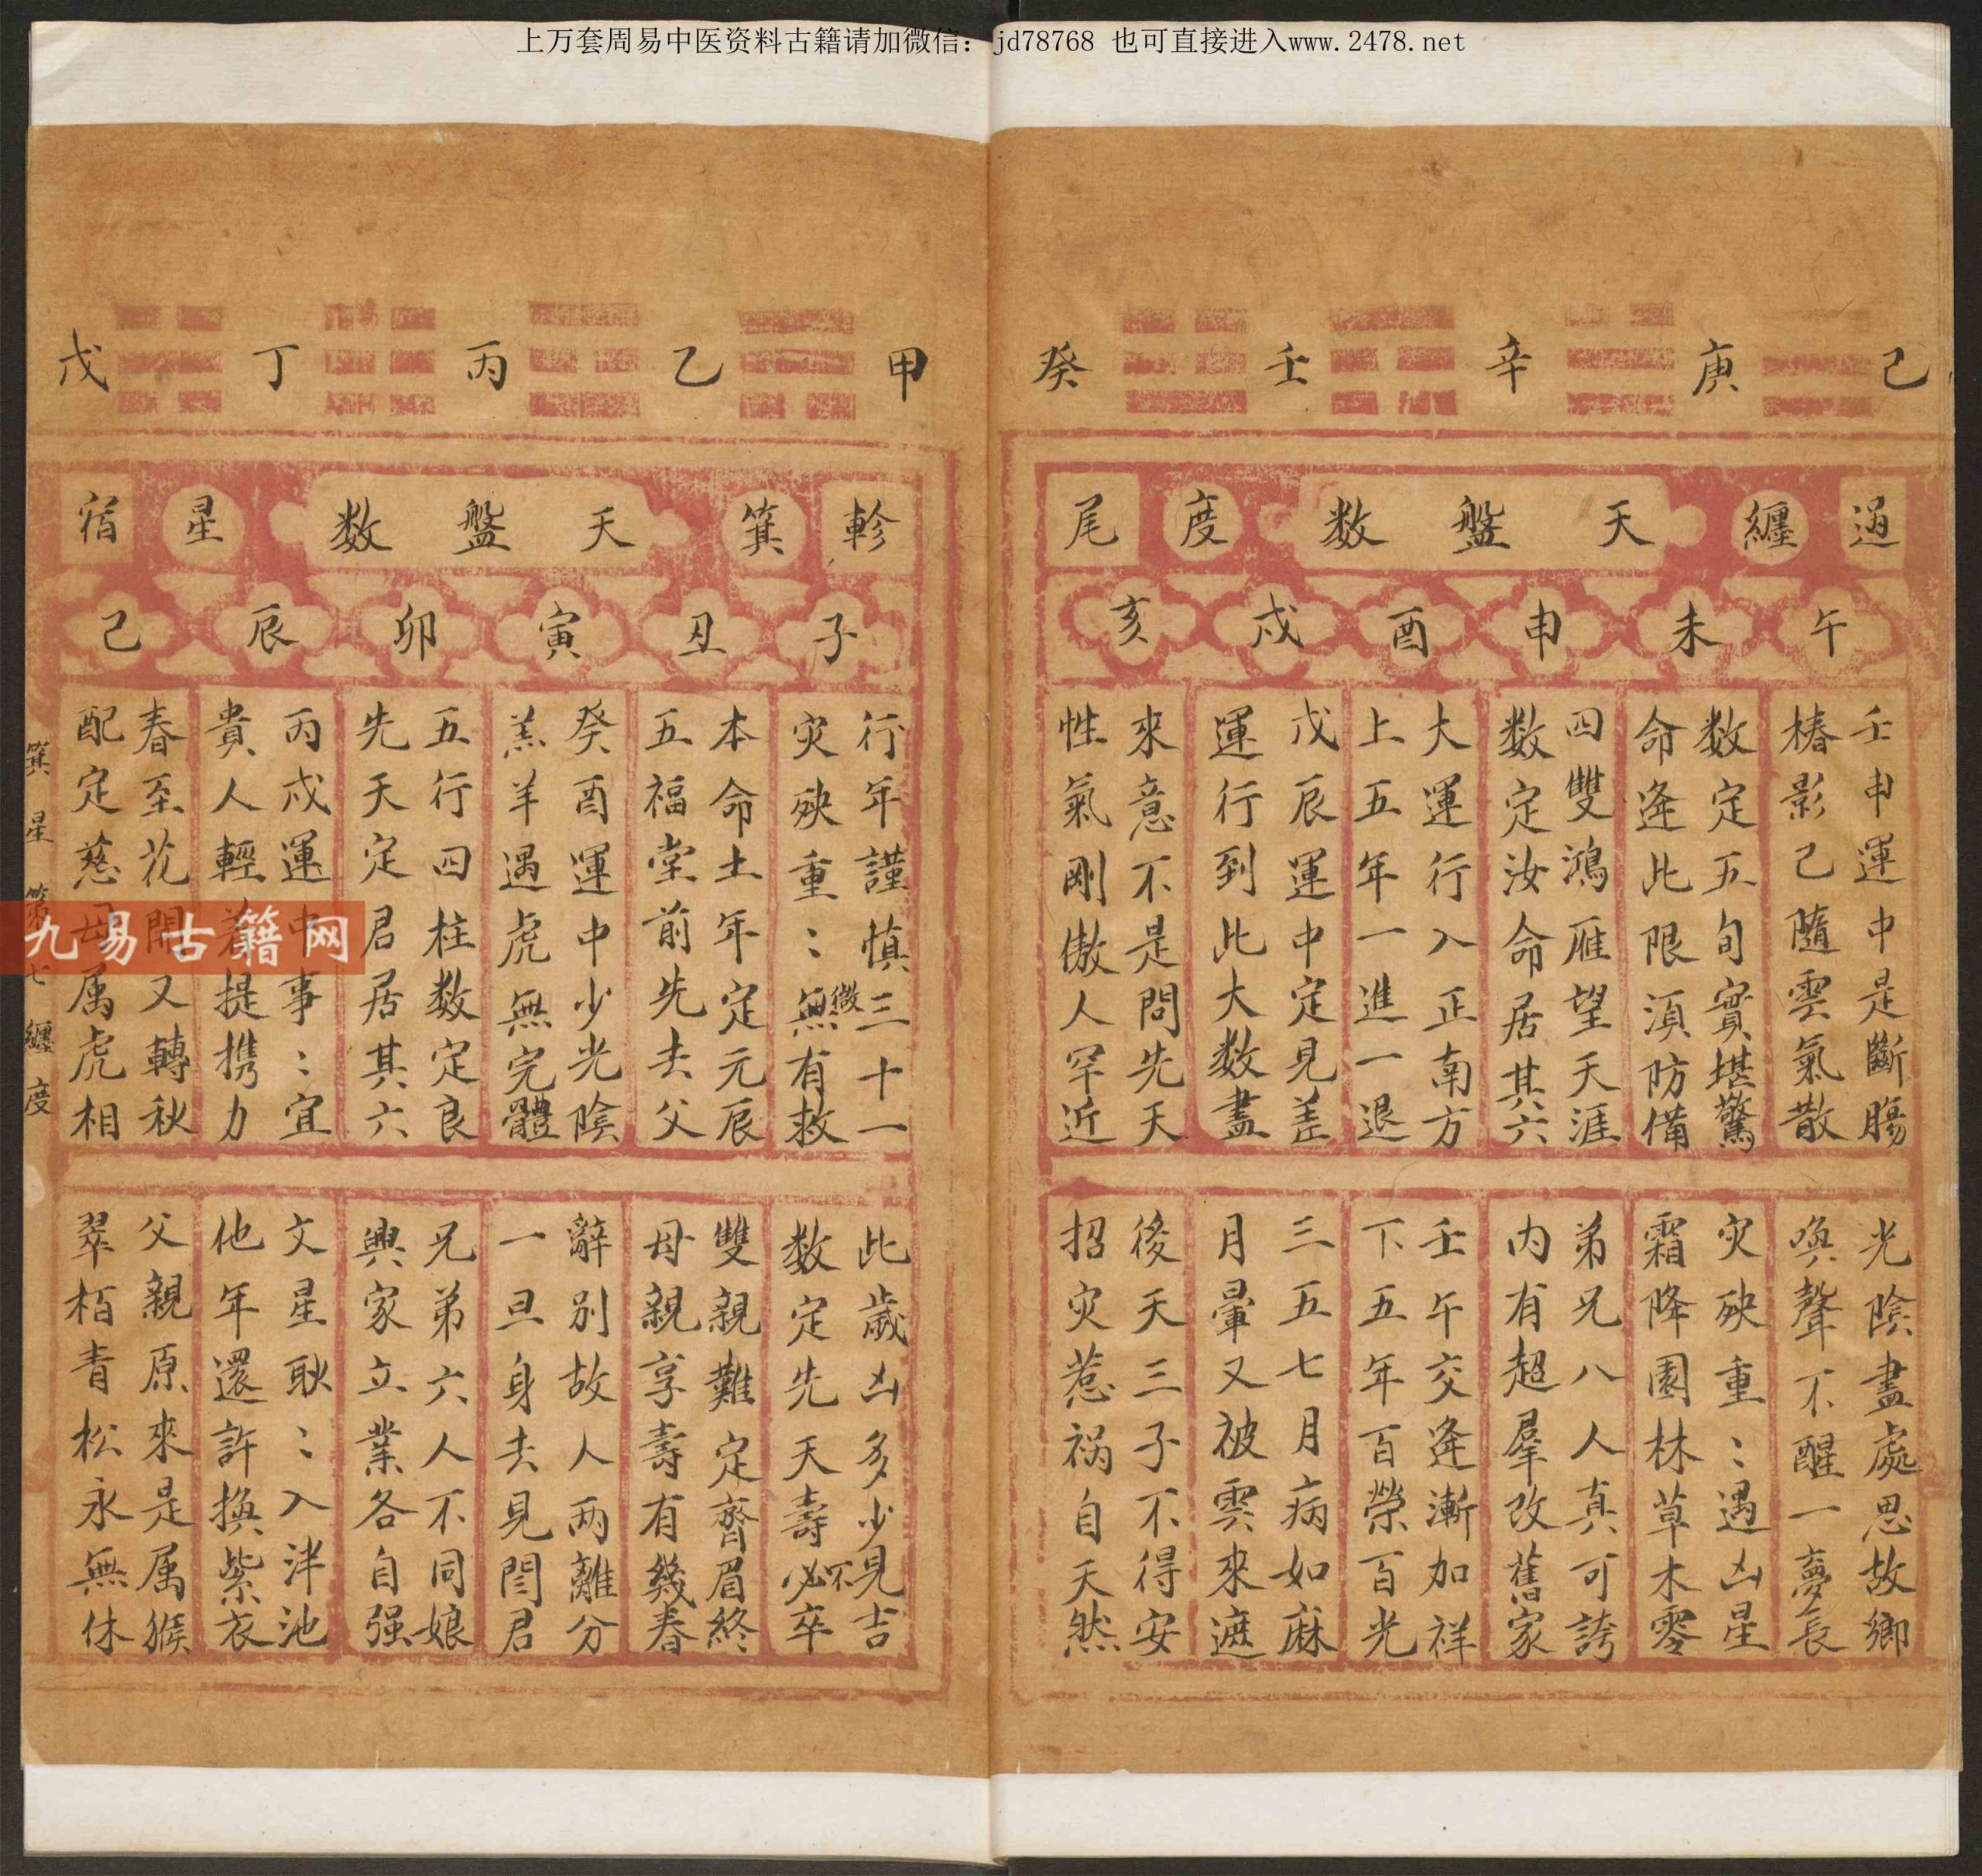 上万套周易中医资料古籍请加微信：jd78768 也可直接进入www.2478.net
己 庚 辛 壬 癸
過 纏 天盤数 度 尾
午 未 申 酉 戌 亥
壬申運中是斷膓
椿影己隨雲氣散
数定五旬實堪驚
命逄此限湏防備
四雙鴻雁望天涯
数定汝命居其六
大運行入正南方
上五年一進一退
戊辰運中定見差
運行到此大数盡
來意不是問先天
性氣剛傲人罕近
光陰盡處思故鄉
喚聲不醒一夢長
灾殃重〻遇凶星
霜降園林草木零
弟兄八人真可誇
内有超羣改舊家
壬午交逄漸加祥
下五年百榮百光
三五七月病如麻
月暈又被雲來遮
後天三子不得安
招灾惹祸自天然
甲 乙 丙 丁 戊
軫 箕 天盤数 星 宿
子 丑 寅 卯 辰 己
行年謹慎三十一
灾殃重〻無微有救
本命土年定元辰
五福堂前先去父
癸酉運中少光陰
羔羊遇虎無完體
五行四柱数定良
先天定君居其六
丙戌運中事〻宜
貴人輕着提携力
春至花開又轉秋
配定慈母属虎相
此歲凶多少見吉
数定先天壽必不卒
雙親難定齊眉終
母親享壽有幾春
辭別故人两離分
一旦身去見閻君
兄弟六人不同娘
興家立業各自强
文星耿〻入泮池
他年還許換紫衣
父親原來是属猴
翠栢青松永無休
箕星 第七 纏度
九易古籍网